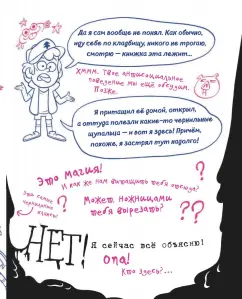 Да я сам вообще не понял. Как обычно,
иду себе по кладбищу, никого не трогаю,
смотрю — книжка эта лежит...
Хммм. Твоё антисоциальное
поведение мы ещё обсудим.
Позже.
Я притащил её домой, открыл,
а оттуда полезли какие-то чернильные
щупальца — и вот я здесь! Причём,
похоже, я застрял тут надолго!
Это магия!
И как же нам вытащить тебя отсюда?
?
Эти самые
чернильные
кляксы?
Может, ножницами
тебя вырезать?
??
НЕТ!
Я сейчас всё объясню!
Опа!
Кто здесь?...